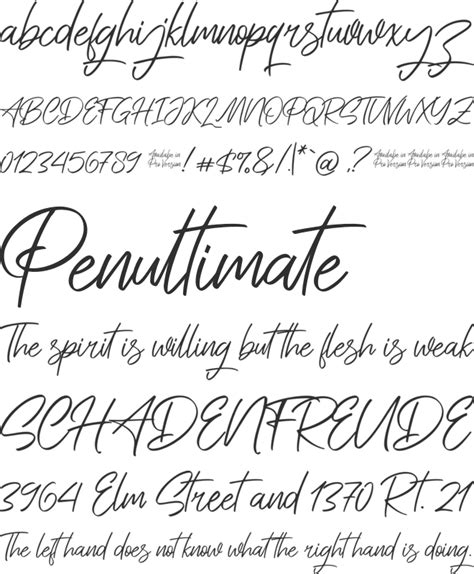 abcdefghijklmnopqrstuvwxyz
ABCDEFGHIJKLMNOPQRSTUVWXYZ
0123456789 Available in Pro Version ! # $ % & / | * ` @ , . ? Available in Pro Version Available in Pro Version Available in Pro Version
Penultimate
The spirit is willing but the flesh is weak
SCHADENFREUDE
3964 Elm Street and 1370 Rt. 21
The left hand does not know what the right hand is doing.